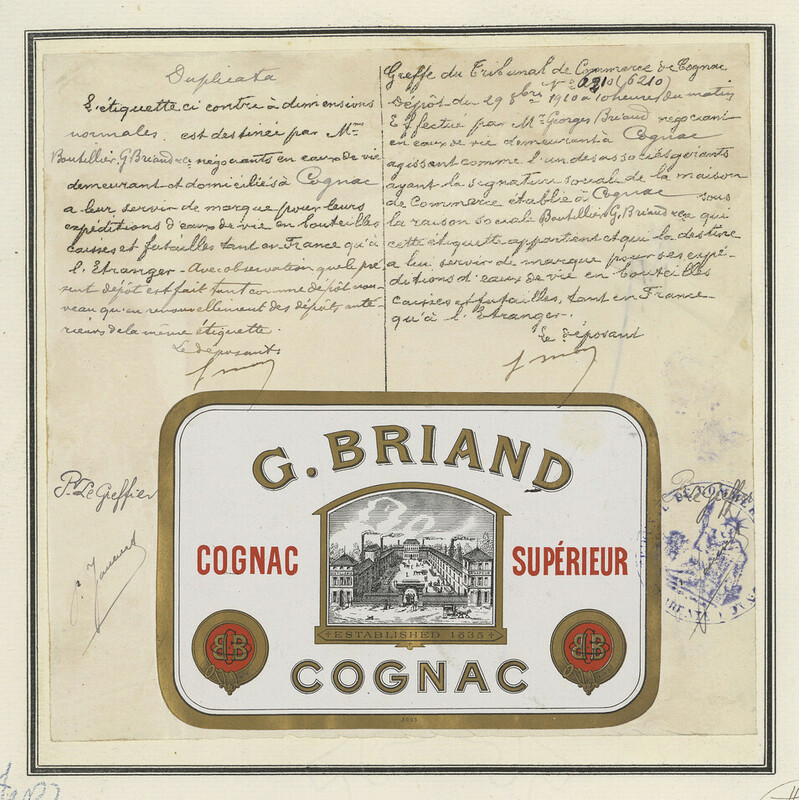 Duplicata
L'étiquette ci contre à dimensions
normales. est destinée par Mrs
Boutillier, G. Briand & Ce négociants en eaux de vie
demeurant et domiciliés à Cognac
a leur servir de marque pour leurs
expéditions d'eaux de vie en bouteilles
caisses et futailles tant en France qu'à
l'Etranger - Avec observation que le pré-
sent dépôt est fait tant comme dépôt nou-
veau qu'en renouvellement des dépôts anté-
rieurs de la même étiquette.
Le déposants
Greffe du Tribunal de Commerce de Cognac
(6210)
Dépôt du 29 8bre 1910 à 10 heures du matin
Effectué par Mr Georges Briand négociant
en eaux de vie demeurant à Cognac
agissant comme l'un des associés gérants
ayant la signature sociale de la maison
de Commerce établie à Cognac sous
la raison sociale Boutillier G. Briand & Ce qui
cette étiquette appartient et qui la destine
a lui servir de marque pour ses expé-
ditions d'eaux de vie en bouteilles
caisses et futailles, tant en France
qu'à l'Etranger.
Le déposant
P. Le Greffier
G. BRIAND
COGNAC
SUPÉRIEUR
ESTABLISHED 1835
COGNAC